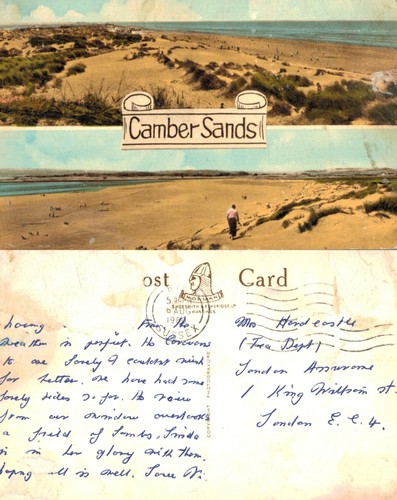 Camber Sands
Post Card
SUSSEX
COPYRIGHT
having fun the
weather is perfect. The Caravans
to are lovely I couldn't wish
for better. We have had some
lovely rides so far. The view
from our window overlooks
a field of lambs, Linda
is in her glory with them.
hoping all is well. Love Vi.
Mrs Hardcastle
(Tea Dept)
London Assurance
1 King William St.
London E.C.4.